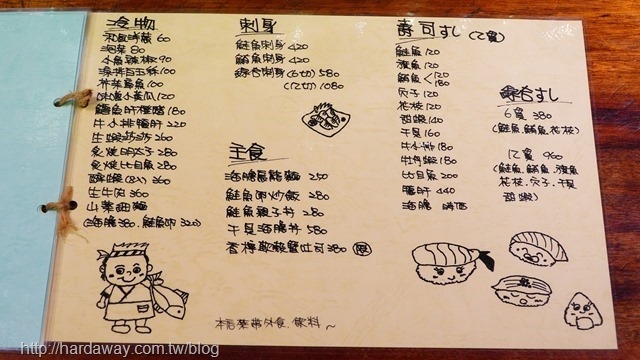 冷物
和風時蔬 60
海菜 80
小魚辣椒 90
涼拌百玉絲 100
芥茉章魚 100
味噌小黃瓜 120
鱈魚肝 180
牛小排 220
生蠔 260
炙燒明太子 280
炙燒比目魚 280
生牛肉 360
山藥細麵
(海膽 380. 鮭魚卵 320)
刺身
鮭魚刺身 420
鮪魚刺身 420
綜合刺身 (6切) 580
(12切) 1080
主食
海膽烏龍麵 250
鮭魚卵炒飯 280
鮭魚親子丼 280
干貝海膽丼 580
香檸軟殼蟹吐司 380
壽司すし (2貫)
鮭魚 120
旗魚 120
鮪魚 < 120
180
穴子 120
花枝 120
甜蝦 140
干貝 160
牛小排 180
牡丹蝦 180
比目魚 200
鵝肝 440
海膽 時價
綜合すし
6貫 380
(鮭魚. 鮪魚. 花枝)
12貫 960
(鮭魚. 鮪魚. 旗魚
花枝. 穴子. 干貝
甜蝦)
本店禁帶外食. 飲料 ~
http://hardaway.com.tw/blog